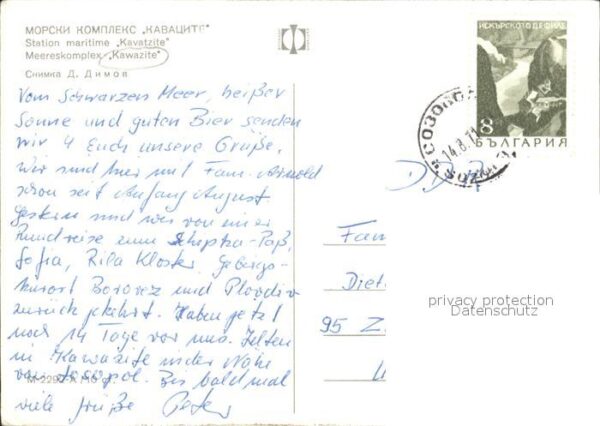 МОРСКИ КОМПЛЕКС „КАВАЦИТЕ"
Station maritime „Kavatzite"
Meereskomplex „Kawazite"
Снимка Д. Димов
Vom Schwarzen Meer, heißer
Sonne und guten Bier senden
wir 4 Euch unsere Grüße.
Wir sind hier mit Fam. Arnold
schon seit Anfang August.
Gestern sind wir von einer
Rundreise zum Schipka-Paß,
Sofia, Rila Kloster, Gebirgs-
kurort Borovez und Plovdiv
zurück gekehrt. Haben jetzt
noch 14 Tage vor uns. Zelten
in Kawazite in der Nähe
von Sosopol. Bis bald mal
viele Grüße Peter
М-2290-А
ИСКЪРСКОТО ДЕФИЛЕ
8
БЪЛГАРИЯ
СОЗОПОЛ
14.8.71
SOZOPOL
DDR
Fam
Diet
95 Z
privacy protection
Datenschutz